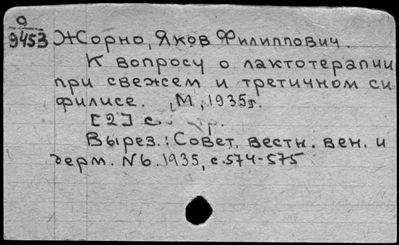 О
9453 Жорно, Яков Филиппович.
К вопросу о лактотерапии
при свежем и третичном си
филисе. М, 1935г.
[2] с.
Вырез.: Совет. вестн. вен. и
дерм. N6. 1935, с. 574-575